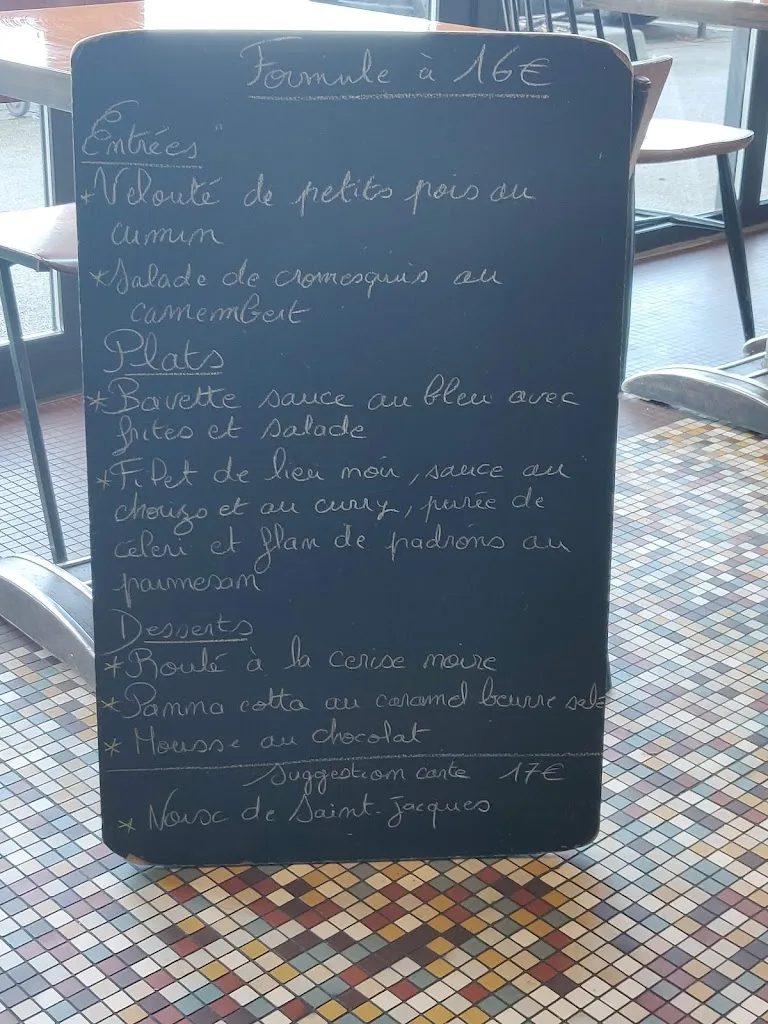 Formule à 16€
Entrées
* Velouté de petits pois au
cumin
* Salade de cromesquis au
camembert
Plats
* Bavette sauce au bleu avec
frites et salade
* Filet de lieu noir, sauce au
chorizo et au curry, purée de
céleri et flan de padrons au
parmesan
Desserts
* Roulé à la cerise noire
* Panna cotta au caramel beurre salé
* Mousse au chocolat
Suggestion carte 17€
* Noix de Saint-Jacques